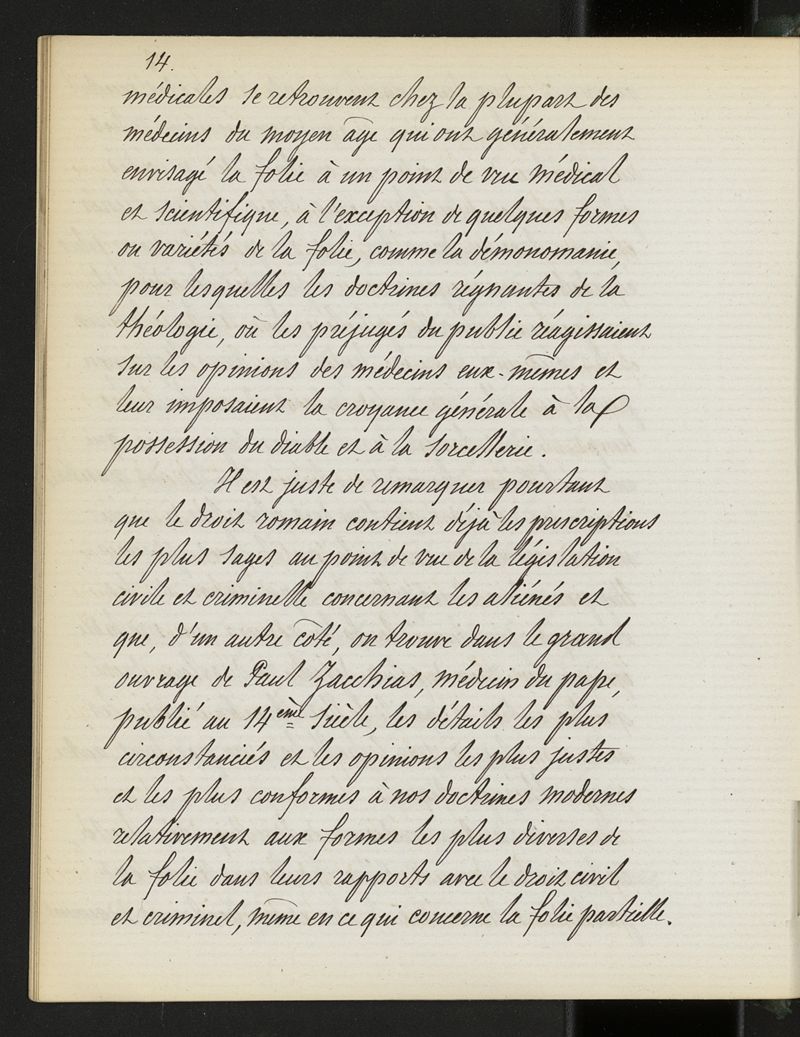 14.
médicales se retrouvent chez la plupart des
médecins du moyen âge qui ont généralement
envisagé la folie à un point de vue médical
et scientifique, à l'exception de quelques formes
ou variétés de la folie, comme la démonomanie,
pour lesquelles les doctrines régnantes de la
théologie, où les préjugés du public réagissaient
sur les opinions des médecins eux-mêmes et
leur imposaient la croyance générale à la
possession du diable et à la sorcellerie.
Il est juste de remarquer pourtant
que le droit romain contient déjà les prescriptions
les plus sages au point de vue de la législation
civile et criminelle concernant les aliénés et
que, d'un autre côté, on trouve dans le grand
ouvrage de Paul Zacchias, médecin du pape,
publié au 14ème siècle, les détails les plus
circonstanciés et les opinions les plus justes
et les plus conformes à nos doctrines modernes
relativement aux formes les plus diverses de
la folie dans leurs rapports avec le droit civil
et criminel, même en ce qui concerne la folie partielle.